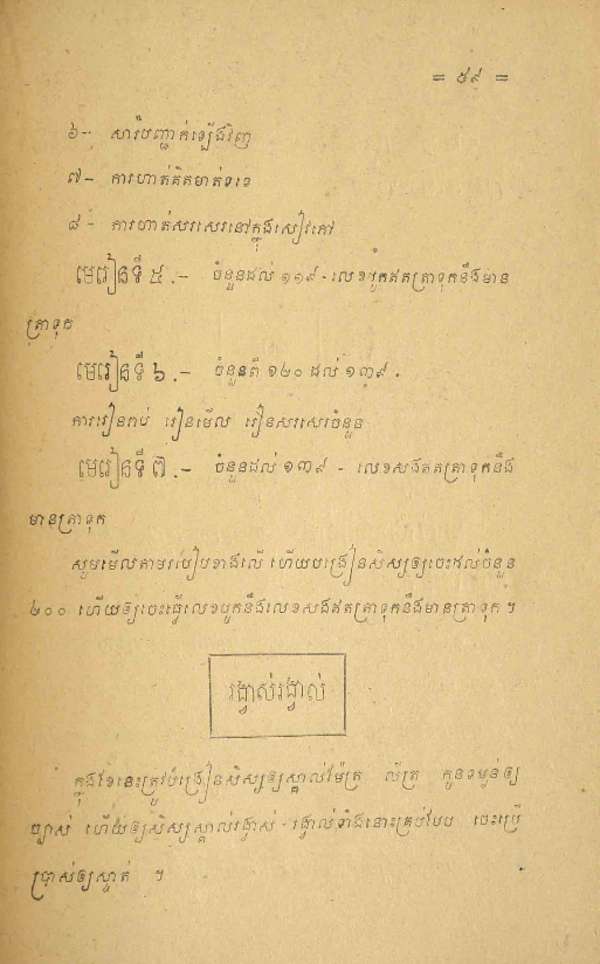 = ៥៩ =
៦- សារបញ្ជាក់ឡើងវិញ
៧- ការហាត់គិតមាត់ទទេ
៨- ការហាត់សរសេរនៅក្នុងសៀវភៅ
មេរៀនទី ៥ .- ចំនួនដល់ ១១៩ - លេខបូកឥតត្រាទុកនឹងមាន
ត្រាទុក
មេរៀនទី ៦ .- ចំនួនពី ១២០ ដល់ ១៣៩ .
ការរៀនរាប់ រៀនមើល រៀនសរសេរចំនួន
មេរៀនទី ៧ .- ចំនួនដល់ ១៣៩ - លេខសងឥតត្រាទុកនឹង
មានត្រាទុក
សូមមើលតាមរបៀបខាងលើ ហើយបង្រៀនសិស្សឲ្យចេះដល់ចំនួន
២០០ ហើយឲ្យចេះធ្វើលេខបូកនឹងលេខសងឥតត្រាទុកនឹងមានត្រាទុក ។
រង្វាស់រង្វាល់
ក្នុងខែនេះត្រូវបង្រៀនសិស្សឲ្យស្គាល់ម៉ែត្រ លីត្រ កូនទម្ងន់ឲ្យ
ច្បាស់ ហើយឲ្យសិស្សស្គាល់រង្វាស់-រង្វាល់ទាំងនោះគ្រប់បែប ចេះប្រើ
ប្រាស់ឲ្យស្ទាត់ ។